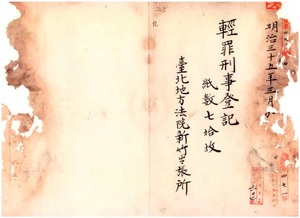 明治三十五年三月
輕罪刑事登記
紙數七拾枚
臺北地方法院新竹出張所